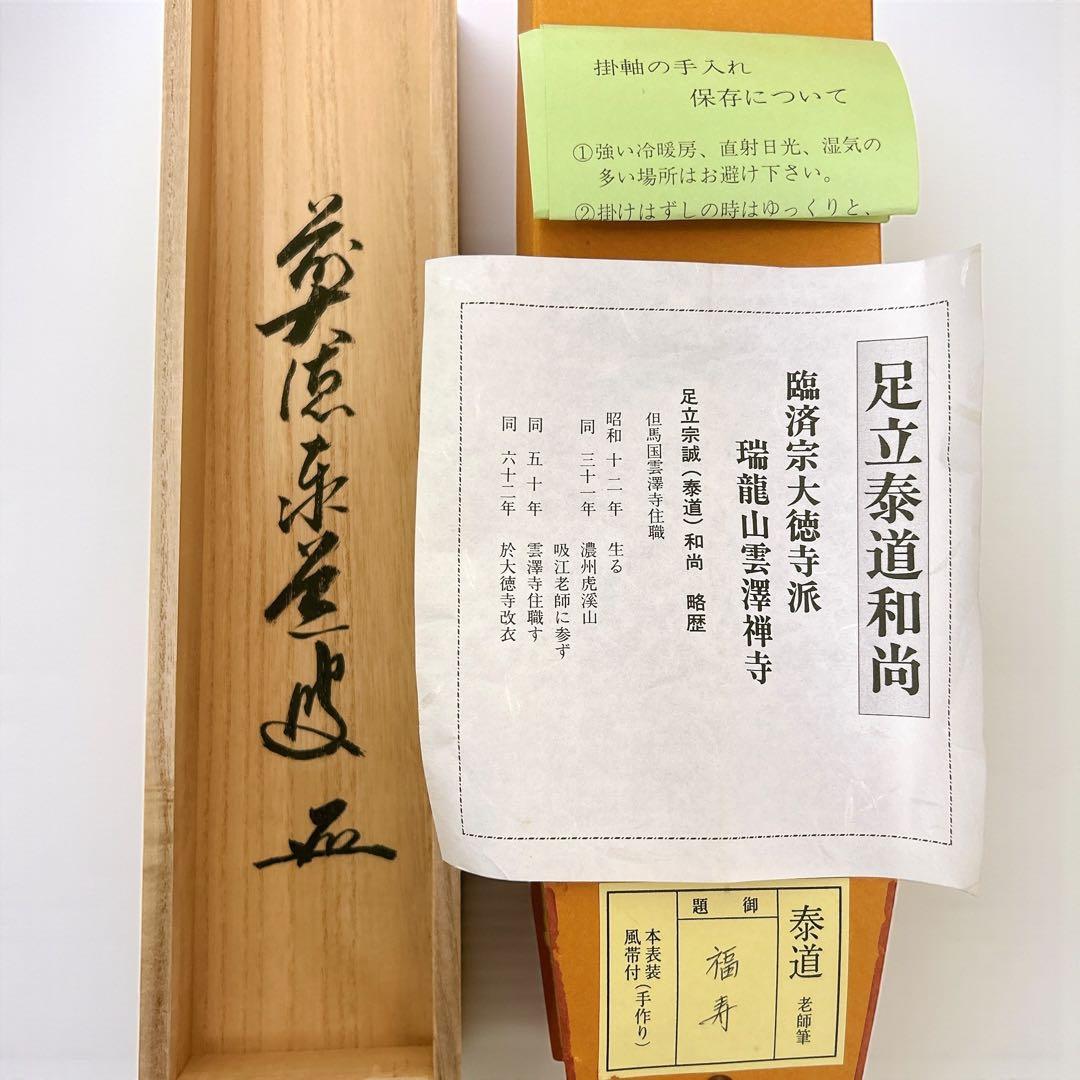 掛軸の手入れ
保存について
①強い冷暖房、直射日光、湿気の
多い場所はお避け下さい。
②掛けはずしの時はゆっくりと、
足立泰道和尚
臨済宗大徳寺派
瑞龍山雲澤禅寺
足立宗誠(泰道)和尚 略歴
但馬国雲澤寺住職
昭和 十二年 生る
同 三十一年 濃州虎溪山
吸江老師に参ず
同 五十年 雲澤寺住職す
同 六十二年 於大徳寺改衣
泰道 老師筆
御題
福寿
本表装
風帯付(手作り)